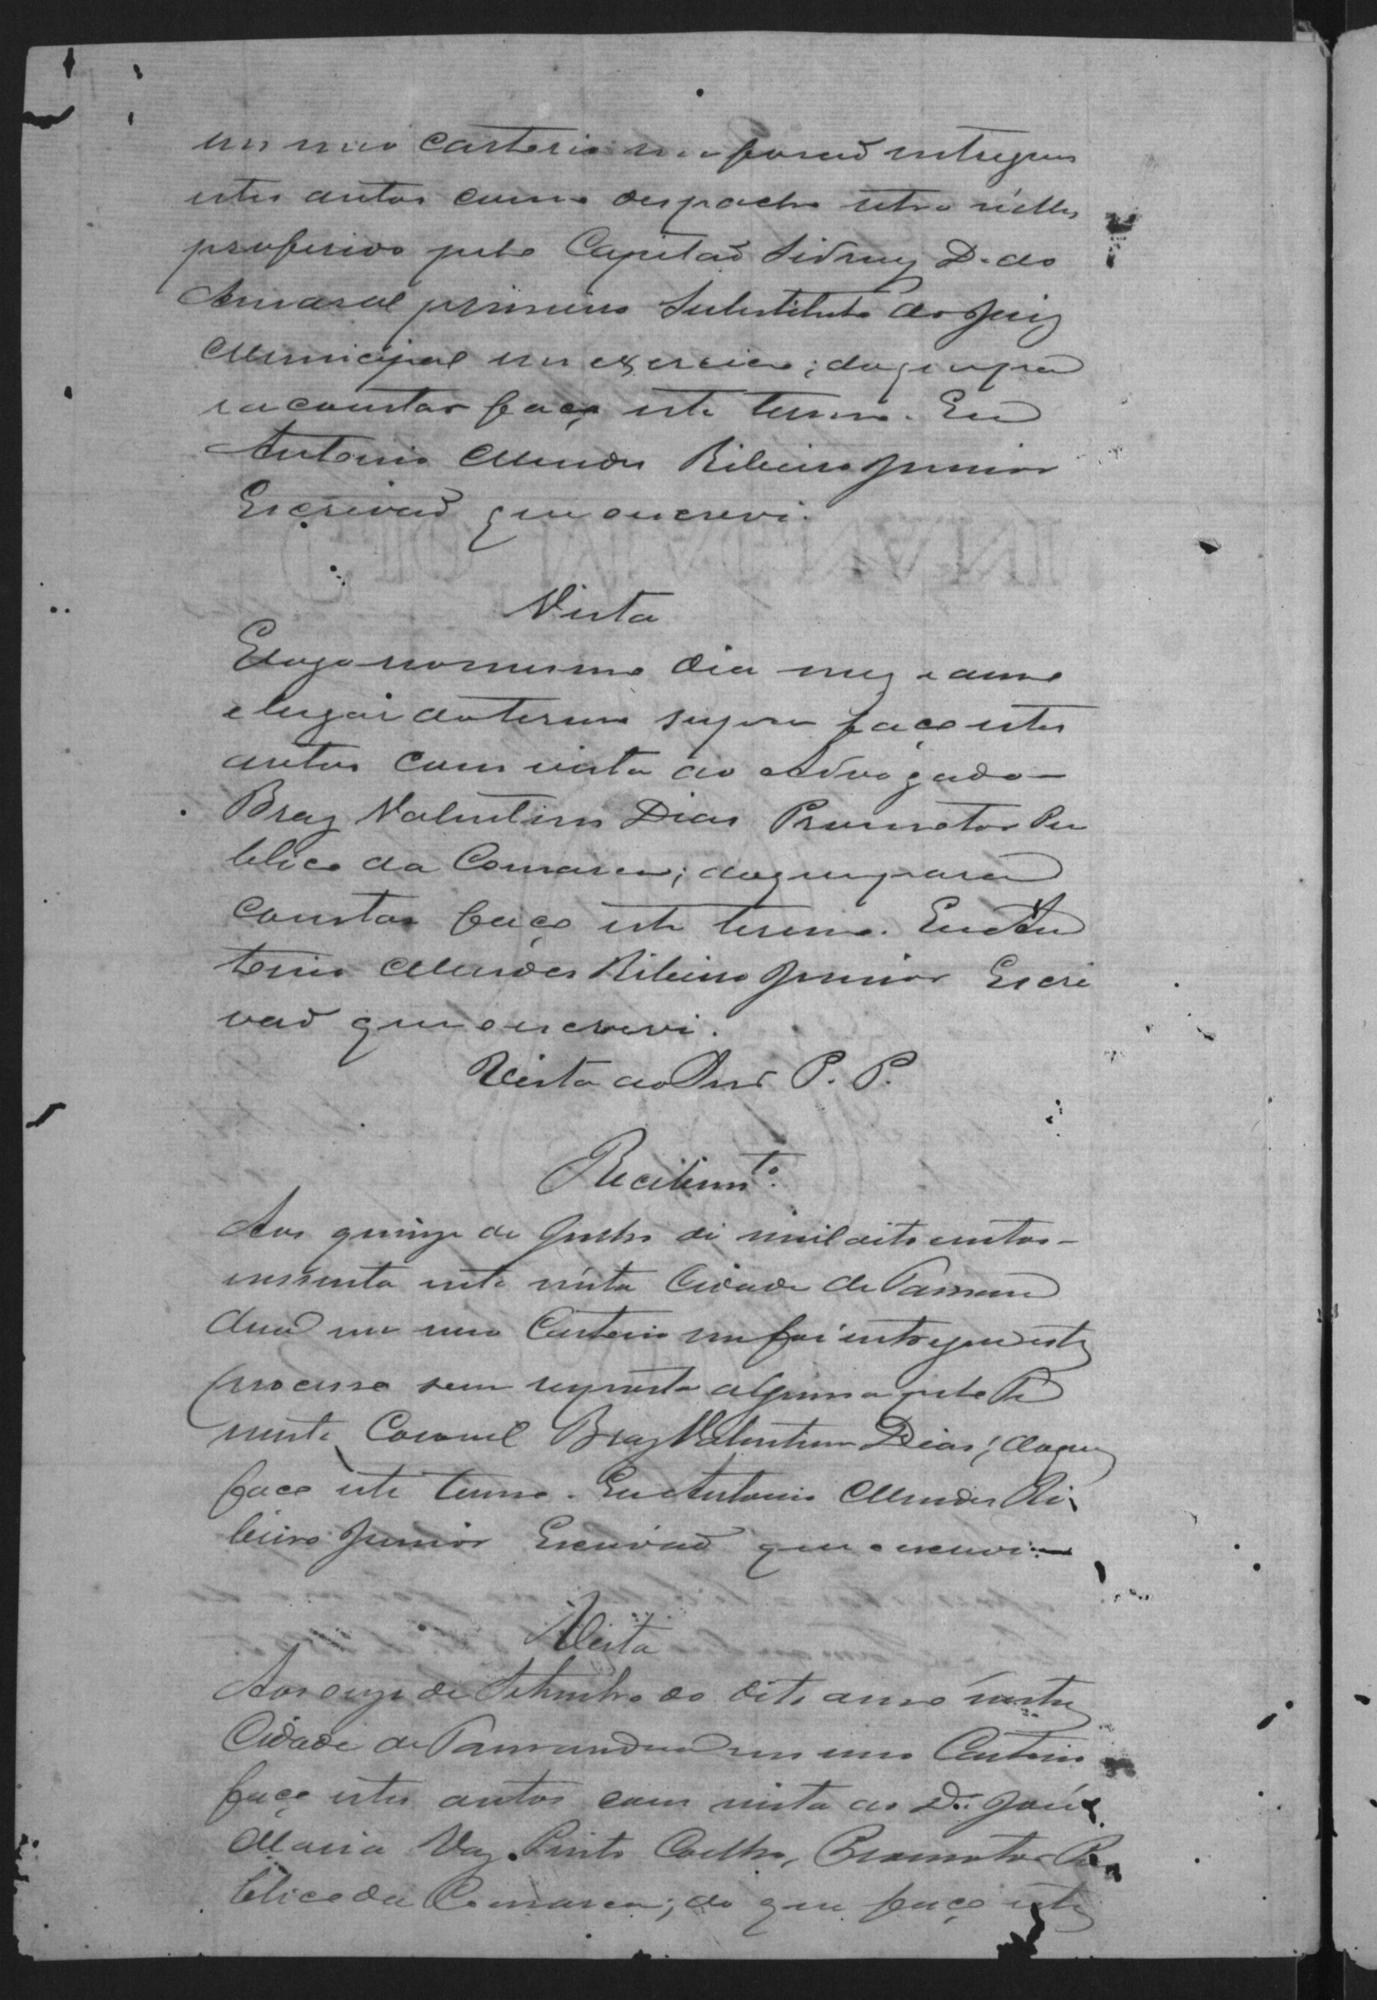 em meu cartorio me forão entregues
estes autos com o despacho retro n'elles
proferido pelo Capitão Sidney D. do
Amaral primeiro Substituto do Juiz
Municipal em exercicio; do que pa
ra constar faço este termo. Eu
Antonio Mendes Ribeiro Junior
Escrivão que o escrevi.
Vista
E logo no mesmo dia mez e anno
e lugar do termo supra faço estes
autos com vista ao Advogado
Braz Valentim Dias Promotor Pu
blico da Comarca; do que para
constar faço este termo. Eu An
tonio Mendes Ribeiro Junior Escri
vão que o escrevi.
Vista ao P. P.
Recibim.to
Aos quinze de Julho de mil oito centos
sessenta e sete n'esta Cidade de Taman
duá em meu Cartorio me foi entregue este
processo sem resposta alguma pelo Te
nente Coronel Braz Valentim Dias; do que
faço este termo. Eu Antonio Mendes Ri
beiro Junior Escrivão que o escrevi
Vista
Aos onze de Setembro do dito anno n'esta
Cidade de Tamanduá em meu Cartorio
faço estes autos com vista ao Dr. José
Maria Vaz Pinto Coelho, Promotor Pu
blico da Comarca; do que faço este